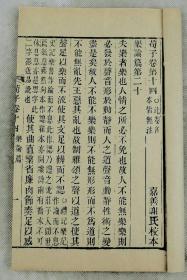 荀子卷第十四 ○此卷各本皆無注
樂論篇第二十 嘉善謝氏校本
夫樂者樂也人情之所必不免也故人不能無樂樂則
必發於聲音形於動靜而人之道聲音動靜性術之變
盡是矣故人不能不樂樂則不能無形形而不為道則
不能無亂先王惡其亂也故制雅頌之聲以道之使其
聲足以樂而不流使其文足以辨而不諰
使其曲直繁省廉肉節奏足以感
荀子卷十四 樂論篇